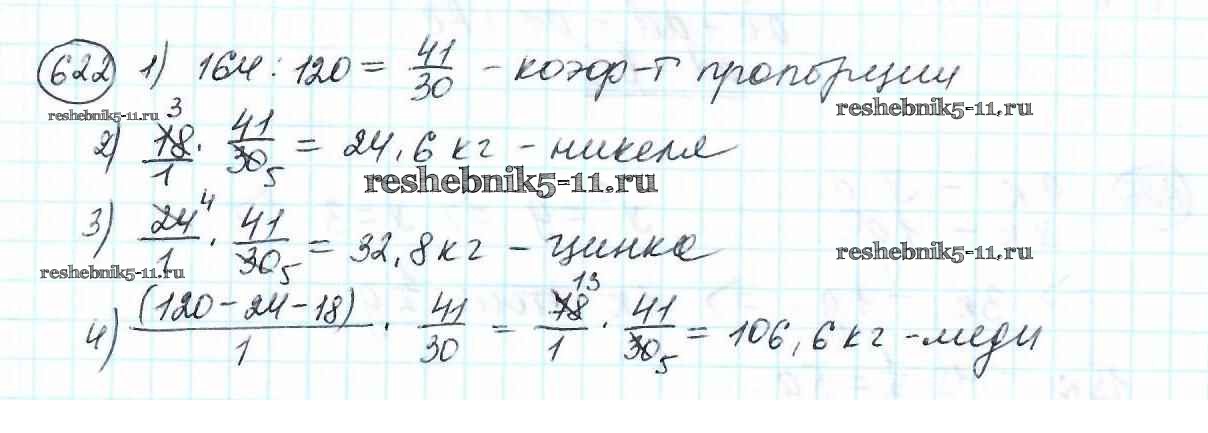 622 1) 164 : 120 = 41/30 - коэф-т пропорции
reshebnik5-11.ru
reshebnik5-11.ru
2) 18/1 3 · 41/30 5 = 24,6 кг - никеля
reshebnik5-11.ru
3) 24/1 4 · 41/30 5 = 32,8 кг - цинка
reshebnik5-11.ru
reshebnik5-11.ru
4) (120 - 24 - 18)/1 · 41/30 = 78/1 13 · 41/30 5 = 106,6 кг - меди